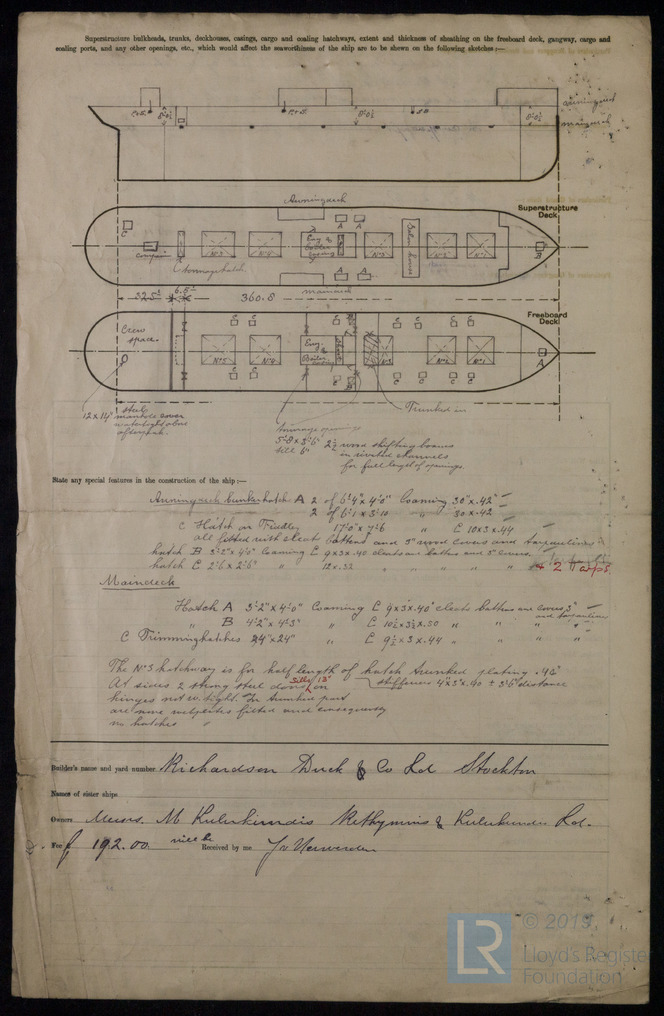 Superstructure bulkheads, trunks, deckhouses, casings, cargo and coaling hatchways, extent and thickness of sheathing on the freeboard deck, gangway, cargo and
coaling ports, and any other openings, etc., which would affect the seaworthiness of the ship are to be shewn on the following sketches :—
Awningdeck
Maindeck
Awningdeck
Superstructure
Deck.
C
A A
B
Companion
Nº5 Nº4
Eng &
boiler
casing
Nº3
Nº2 Nº1
tonnage hatch
A A
maindeck
52.5 6.5 360.8
Freeboard
Deck
Crew
space
C C
C C C C
Nº5 Nº4
Eng. &
Boiler
Nº3
Nº2 Nº1
A
C C
C C C C
Trunked in
steel
12 x 14" manhole cover
watertight above
afterpeak.
tonnage openings
5'-8 x 3'-6"
sill 6"
2½ wood shifting boards
in riveted channels
for full length of openings.
State any special features in the construction of the ship :—
Awningdeck bunkerhatch A 2 of 6'4" x 4'0" Coaming 30" x .42"
2 of 6'-1 x 3'-10 " 30 x .42
C Hatch on Fiddley 17'0" x 7'6 " 10 x 3 x .44
all fitted with cleats battens and 3" wood covers and tarpaulins
hatch B 3'-2" x 4'0" Coaming 9 x 3 x .40 cleats and battens and 3" covers
hatch C 2'6 x 2'6" " 12 x .32 " " " " " 2 Tarps.
Maindeck
Hatch A 3'-2" x 4'-0" Coaming 9 x 3 x .40 cleats battens and covers 3"
and tarpaulins
" B 4'-2" x 4'-3" " 10½ x 3½ x .50 " " " "
C Trimminghatches 24" x 24" " 9½ x 3 x .44 " " " "
The Nº3 hatchway is for half length of hatch trunked plating .46"
stiffeners 4 x 3 x .40 ± 3'6 distance
At sides 2 strong steel doors on
Sills 18"
hinges not w. tight. In trunked part
are more webplates fitted and consequently
no hatches
Builder's name and yard number Richardson Duck & Co Ld Stockton
Names of sister ships
Owners Messrs. M Kulukundis Rethymnis & Kulukundis Ltd.
Fee £ 192.00 will be Received by me
© 2019
LR
Lloyd's Register
Foundation